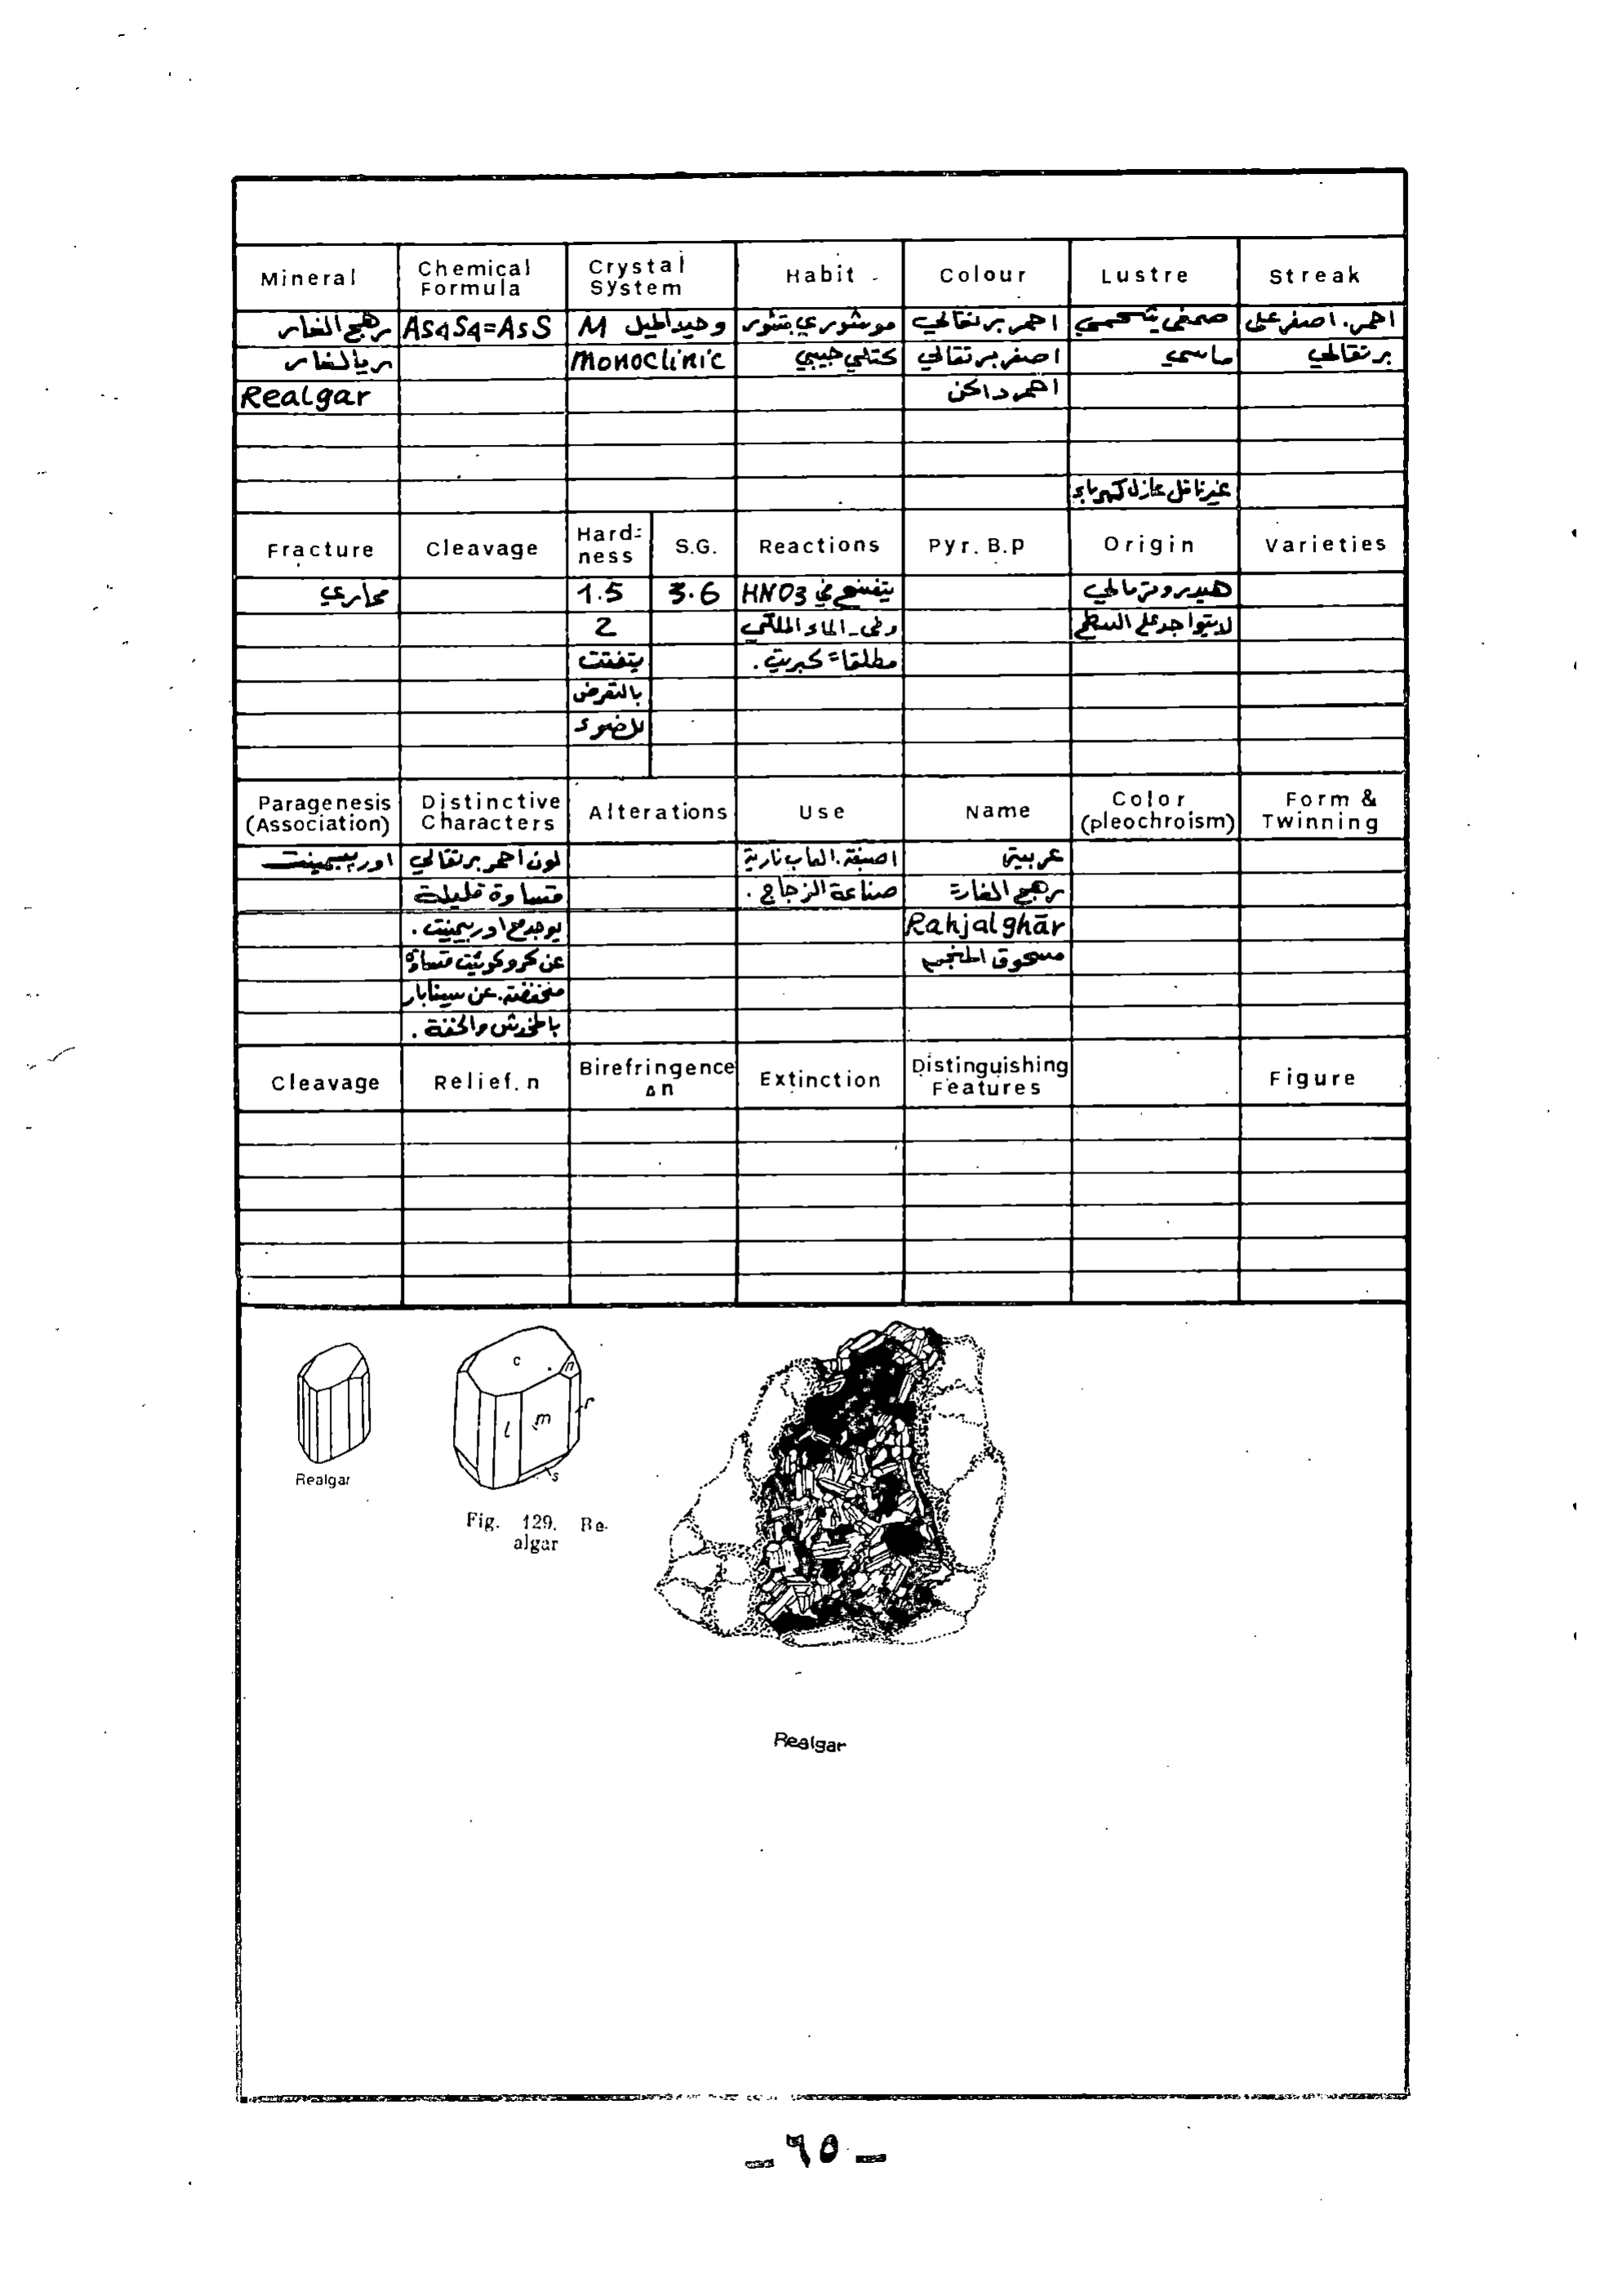 Mineral
Chemical Formula
Crystal System
Habit
Colour
Lustre
Streak
رهج الغار
As4S4=AsS
وحيد الميل M
موشوري بتثور
احمر برتقالي
صمغي شحمي
احمر. اصفر على
ريالغار
Monoclinic
كتلي حبيبي
اصفر برتقالي
ماسي
برتقالي
Realgar
احمر داكن
غير ناقل عازل كهرباء
Fracture
Cleavage
Hard-ness
S.G.
Reactions
Pyr. B.p
Origin
Varieties
محاري
1.5
3.6
يتفسخ في HNO3
هيدروترمالي
2
وفي الماء الملكي
لا يتواجد على السطح
يتفتت
مطلقا = كبريت.
بالتعرض
للضوء
Paragenesis (Association)
Distinctive Characters
Alterations
Use
Name
Color (pleochroism)
Form & Twinning
اوربيمينت
لون احمر برتقالي
اصبغة. العاب نارية
عربية
قساوة قليلة
صناعة الزجاج.
رهج الغارة
يوجد مع اوربيمينت.
Rahjalghār
عن كروكوئيت قساوة
مسحوق المنجم
منخفضة. عن سينابار
بالخدش والخفة.
Cleavage
Relief. n
Birefringence Δn
Extinction
Distinguishing Features
Figure
c
n
r
l
m
s
Realgar
Fig. 129. Re-
algar
Realgar
- ٦٥ -